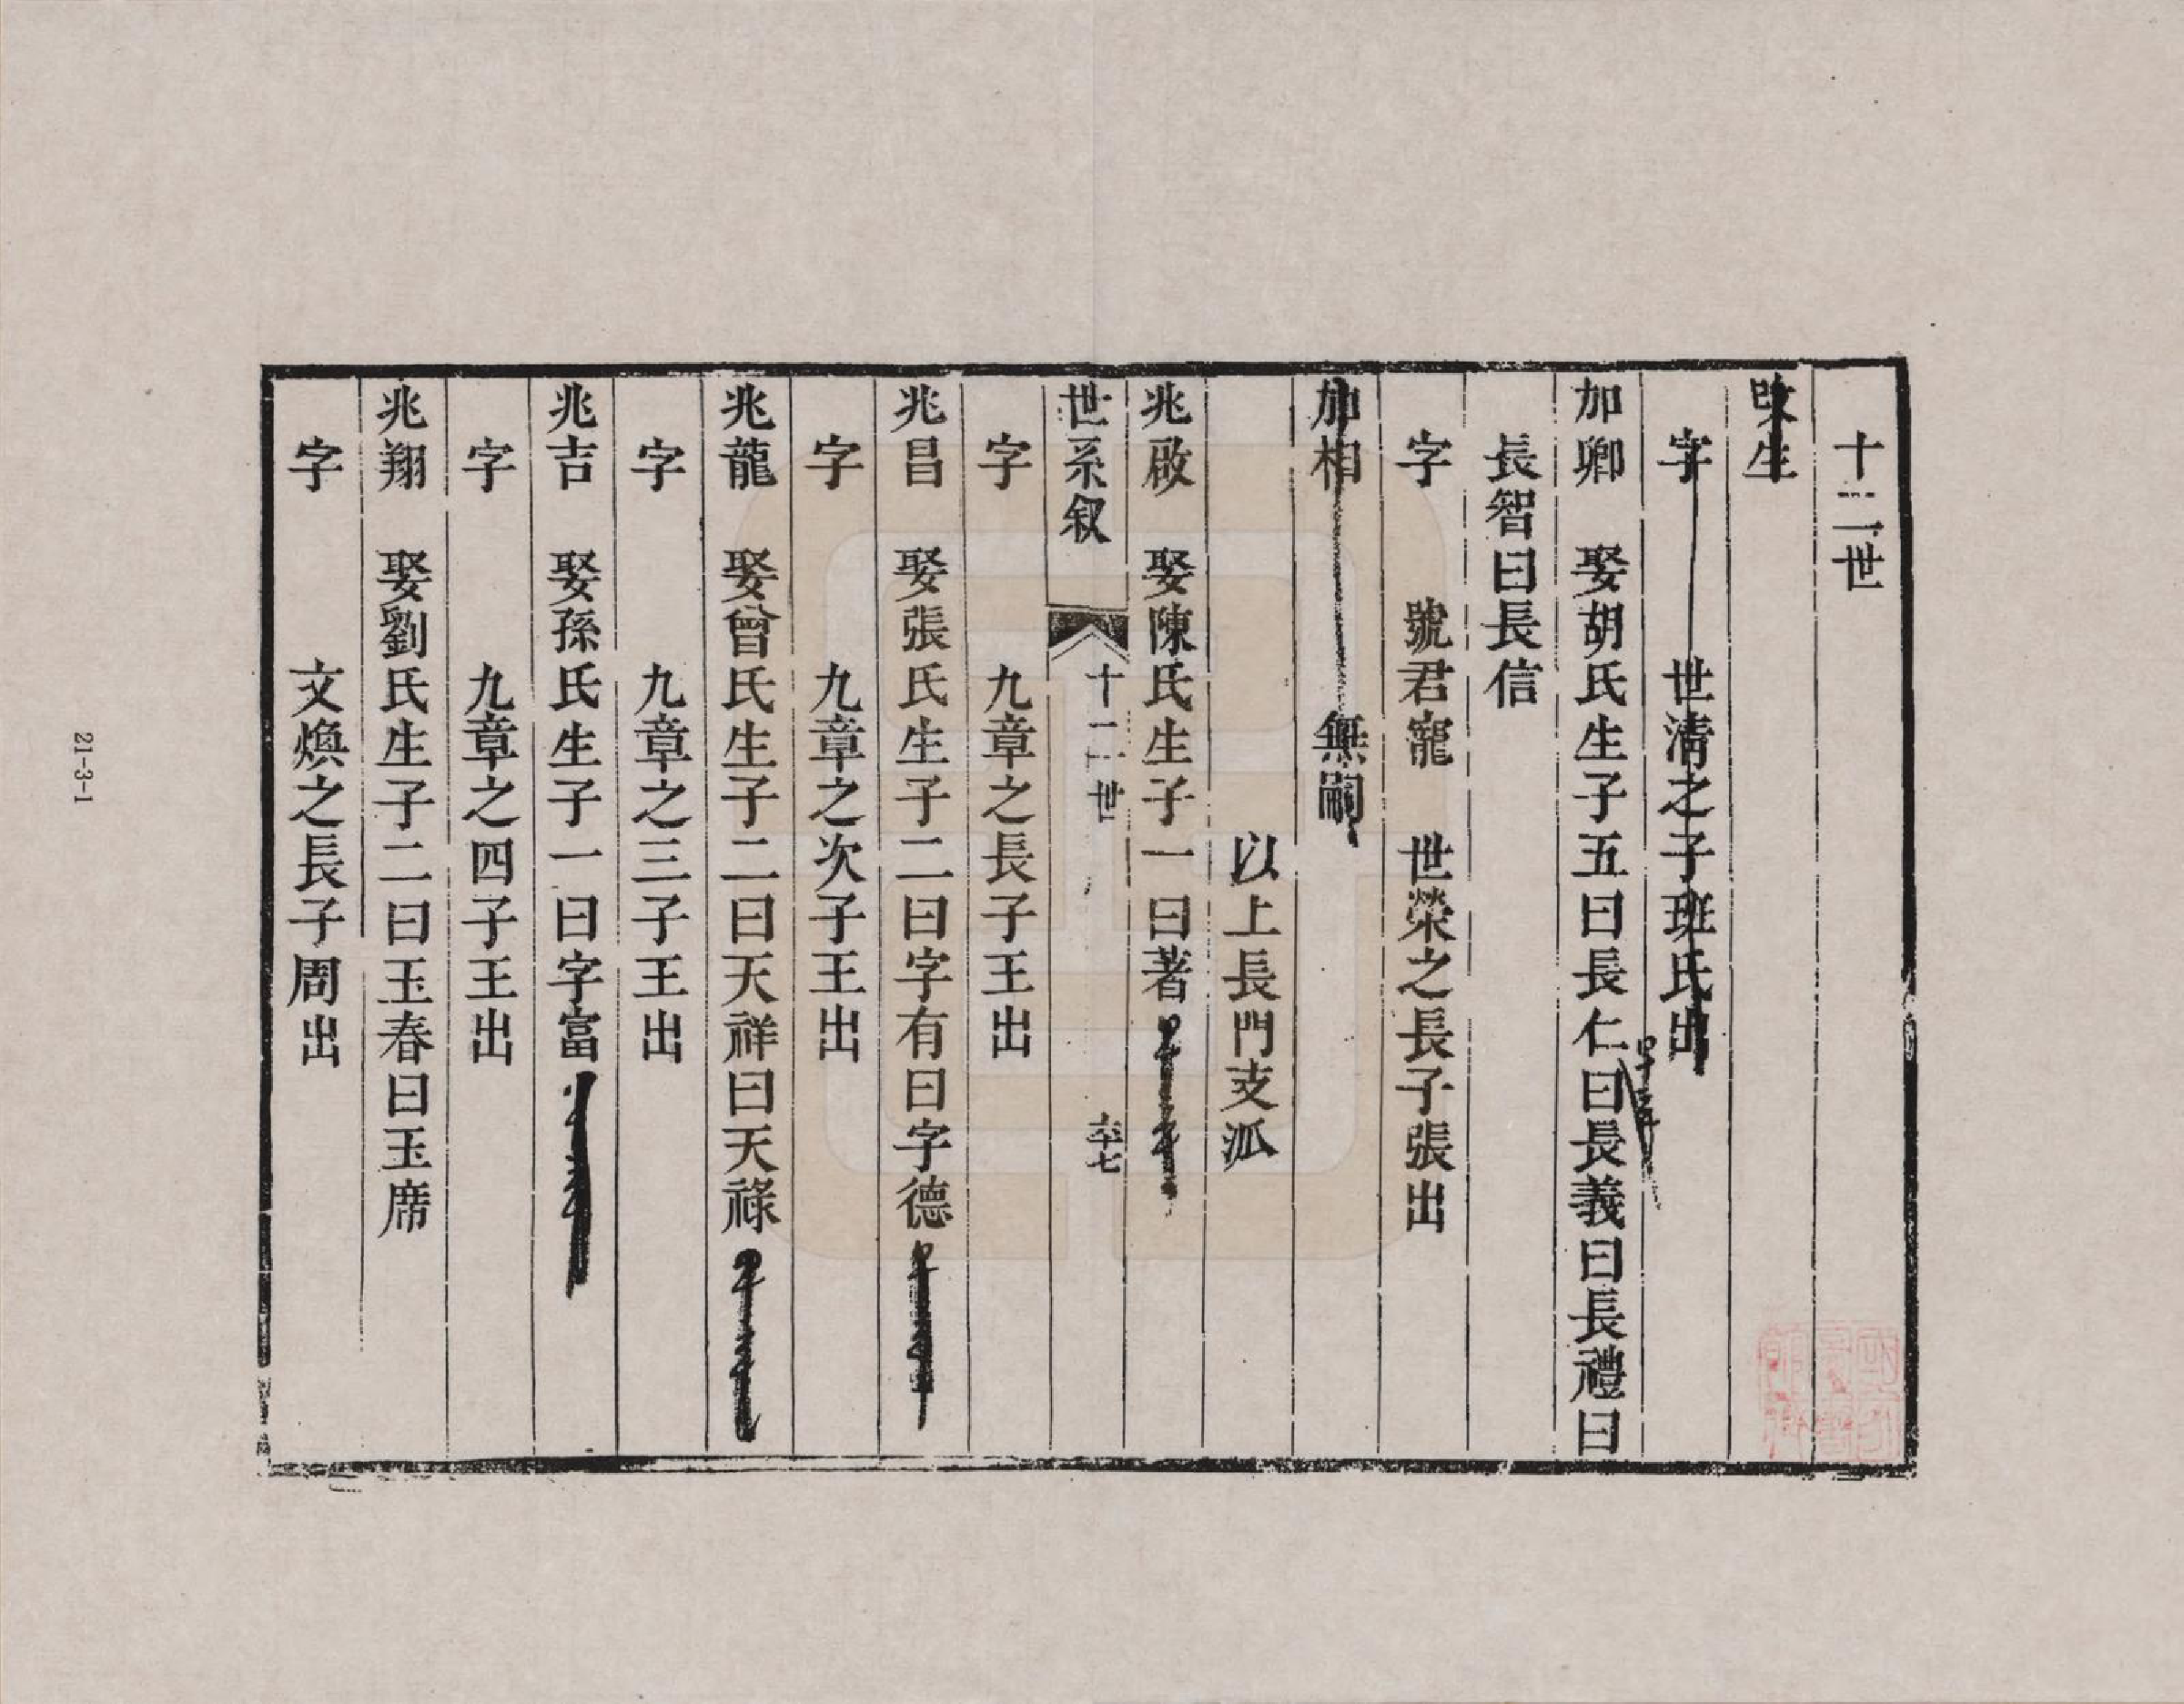 十二世
生
字 世清之子班氏出
加卿 娶胡氏生子五曰長仁曰長義曰長禮曰
長智曰長信
字 號君寵 世榮之長子張出
加相 無嗣
以上長門支派
兆啟 娶陳氏生子一曰著
世系叙 十二世 六十七
字 九章之長子王出
兆昌 娶張氏生子二曰字有曰字德
字 九章之次子王出
兆龍 娶曾氏生子二曰天祥曰天祿
字 九章之三子王出
兆吉 娶孫氏生子一曰字富
字 九章之四子王出
兆翔 娶劉氏生子二曰玉春曰玉席
字 文煥之長子周出
21-3-1